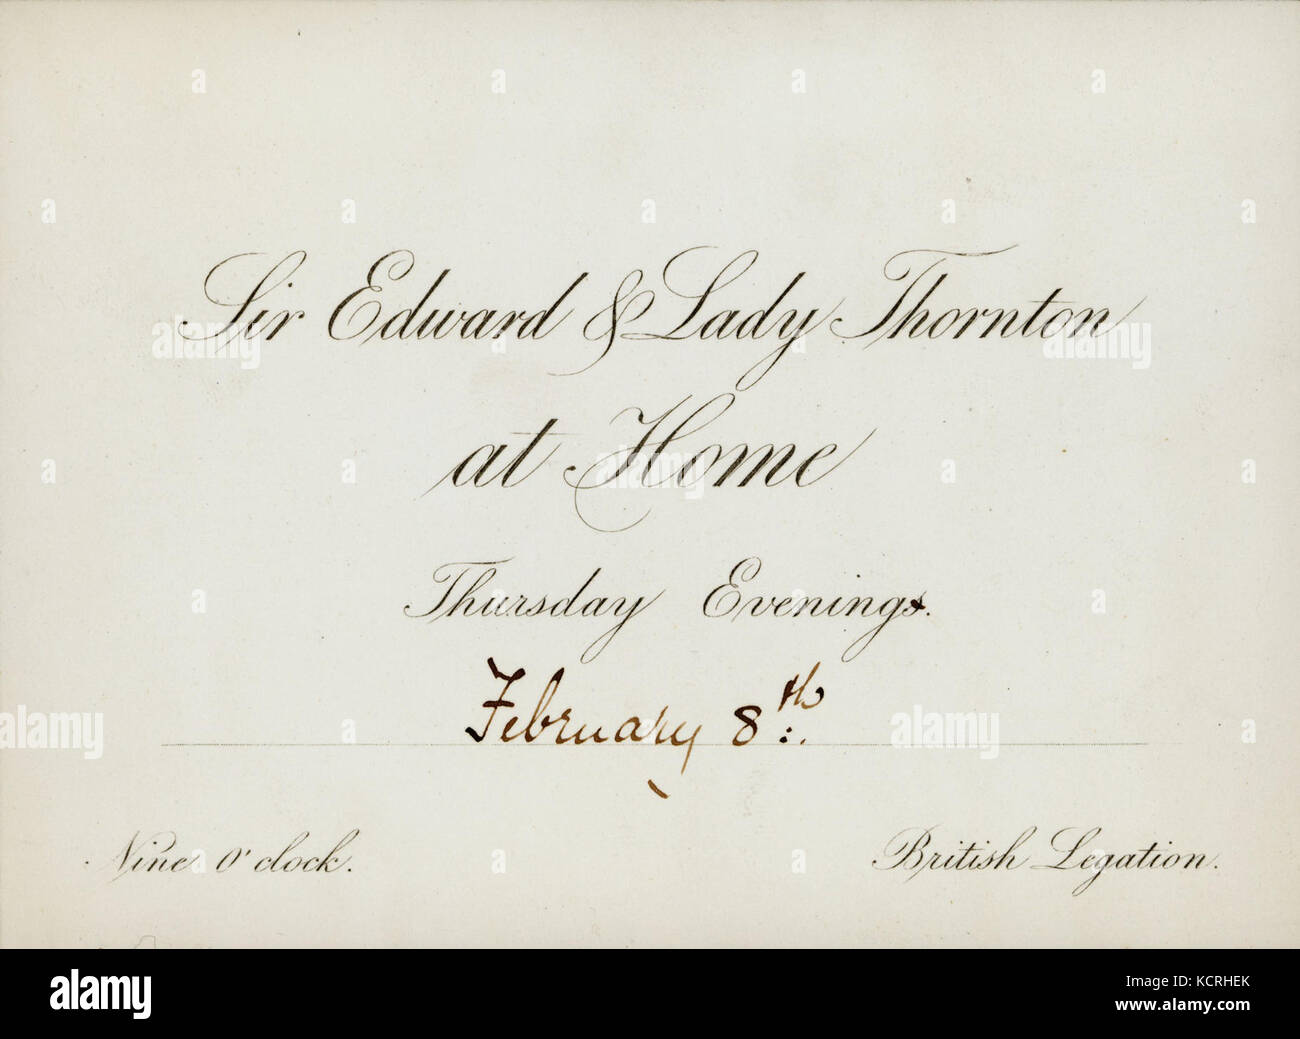 Sir Edward & Lady Thornton
at Home
Thursday Evenings.
February 8th.
Nine O'clock.
British Legation.
alamy
Image ID: KCRHEK
www.alamy.com